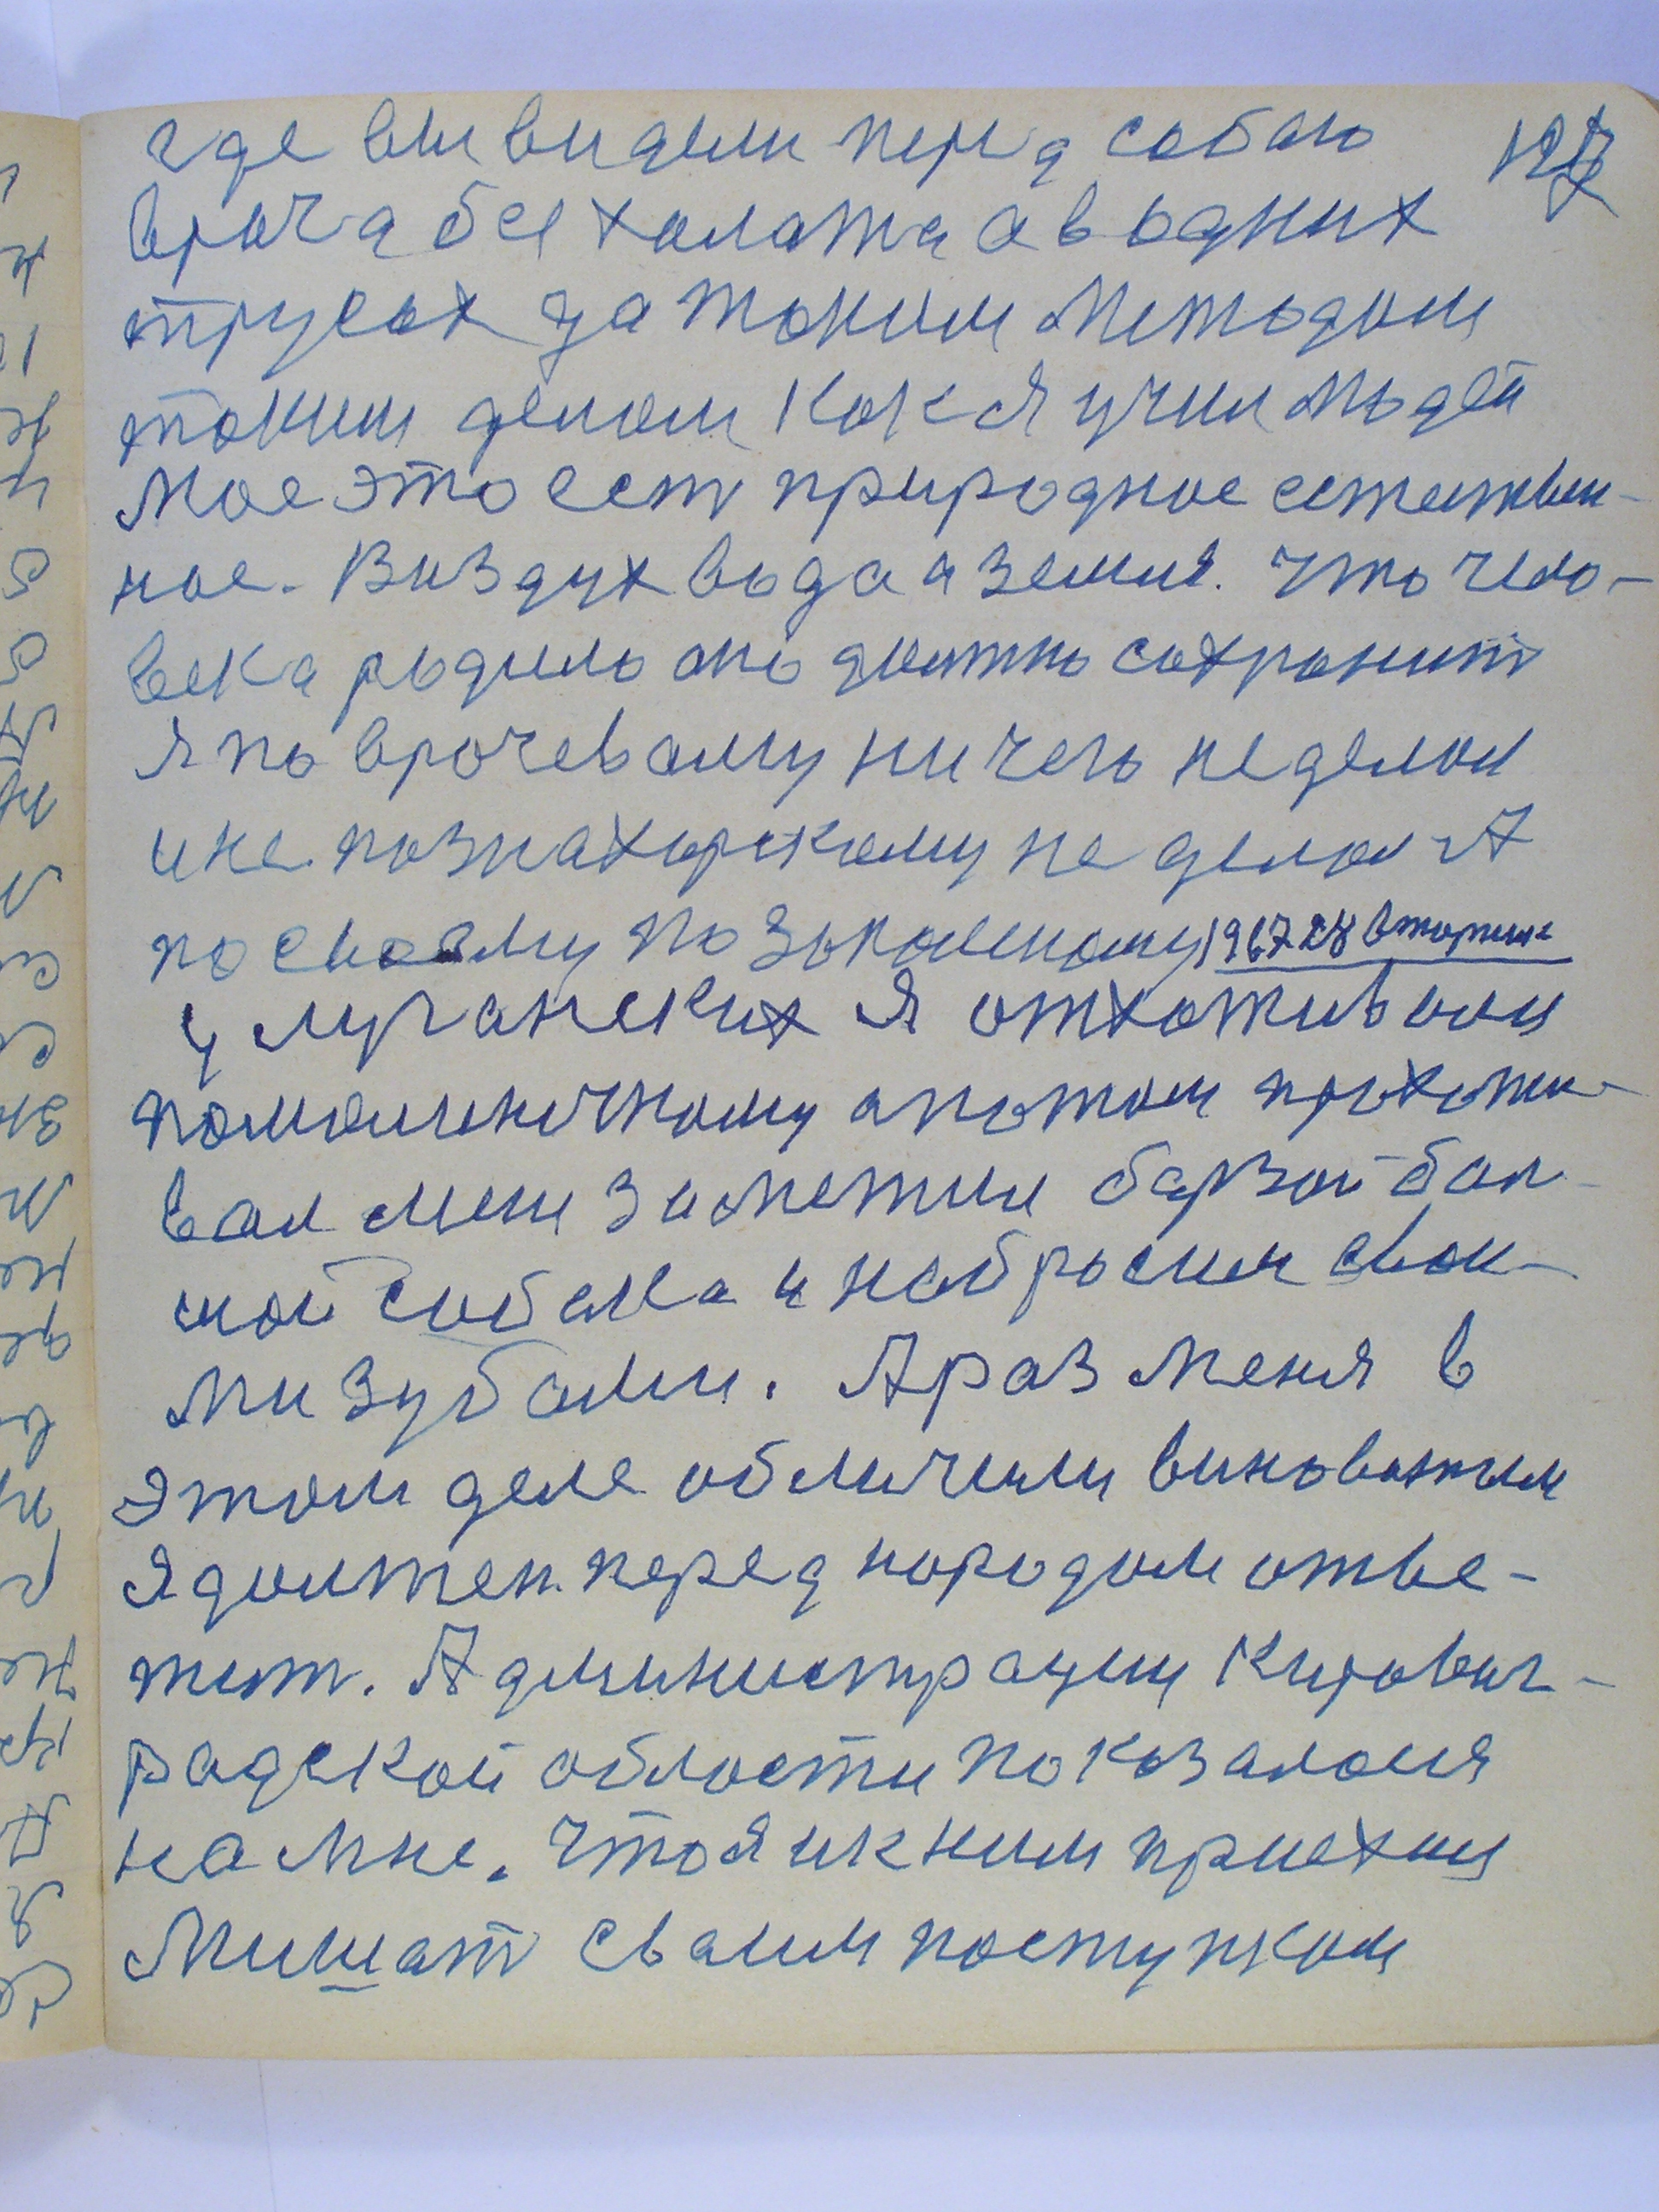 где вы видели перед собаю
врача без халата а в одних
трусах да таким методом
таким делом как я учил людей
Мое это есть природное естествен-
ное. Воздух вода а земля. Что чело-
века родило оно должно сохранит
Я по врачевому ничего не делал
и не познахорскому не делал А
по своему по закаленому 1967 28 вторник
у луганских я отхаживал
помаленичкому а потом прохажи-
вал меня заметил барзой бол-
шой собака и набросил свои-
ми зубами. А раз меня в
этом деле обличили виноватым
Я должен перед народом отве-
тит. Администрацыи Кировог-
радской области показалося
на мне. Что я и к ним приехал
Мишат своим поступком